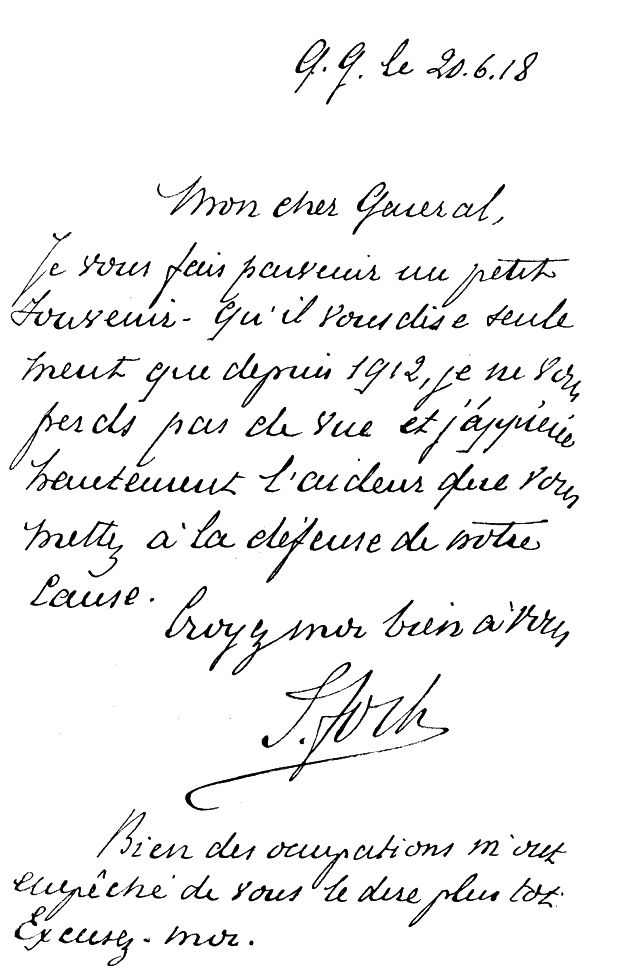 G. G. le 20.6.18
Mon cher General,
Je vous fais parvenir un petit
souvenir - Qu'il vous dise seule
ment que depuis 1912, je ne vous
perds pas de vue et j'apprécie
hautement l'ardeur que vous
mettez à la défense de notre
cause.
Croyez moi bien à vous
F. Foch
Bien des ocupations m'ont
empêché de vous le dire plus tot.
Excusez-moi.